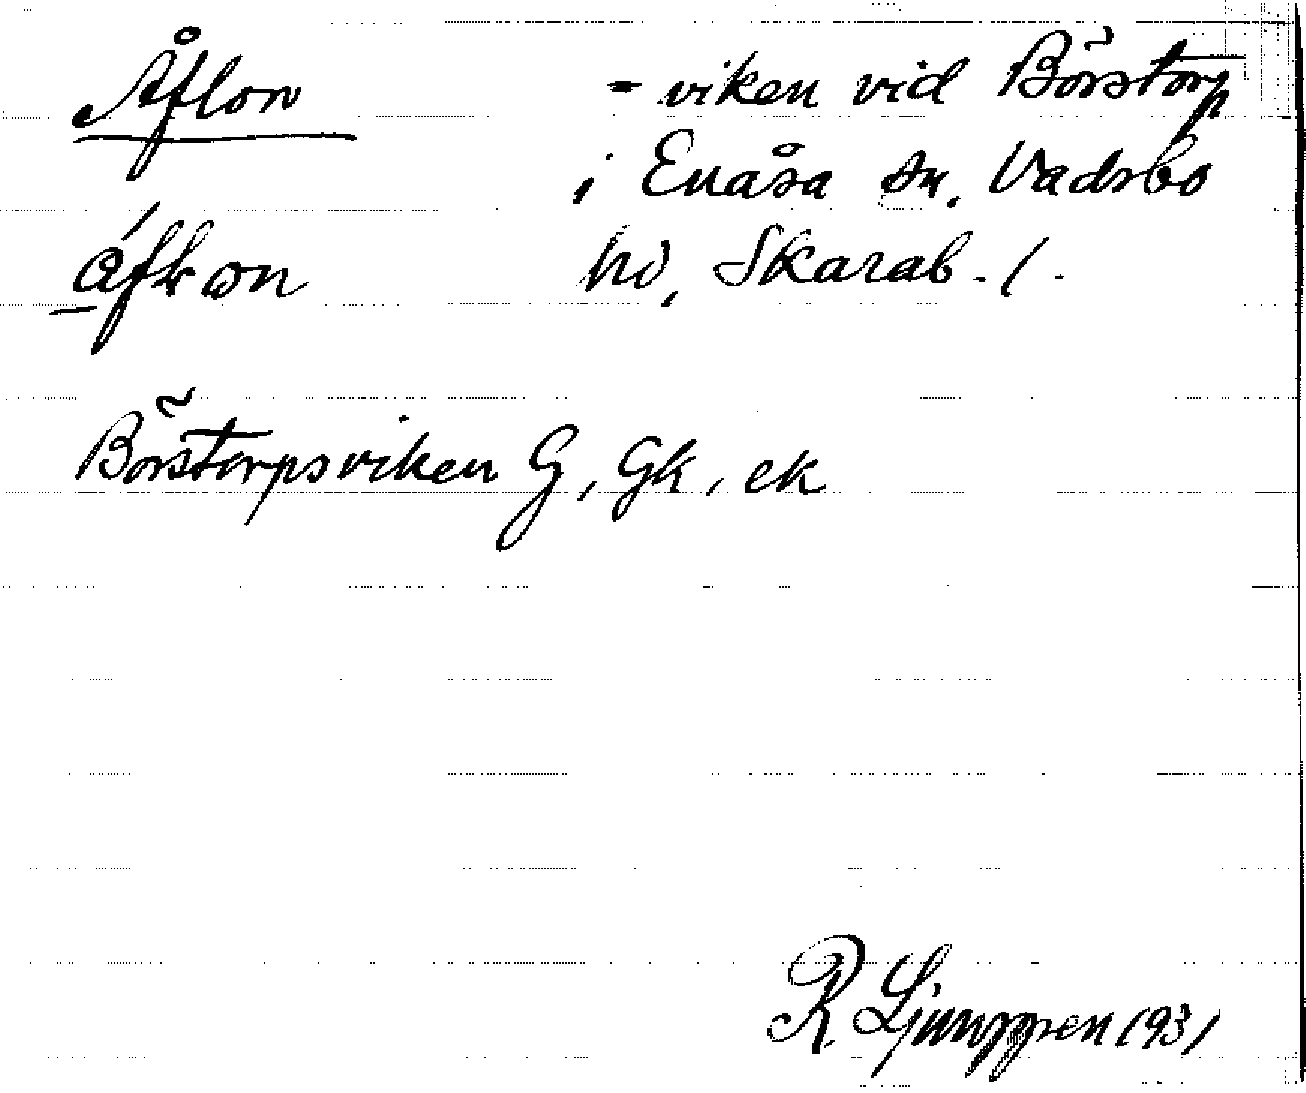 Åflon = viken vid Börstorp
i Enåsa sn, Vadsbo
hd, Skarab. l.
Börstorpsviken G, Gk, ek
R Ljunggren 1931